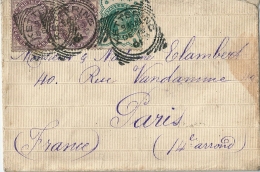 Monsieur & M Elambert
40. Rue Vandamme
Paris
(France) (14e arrond)